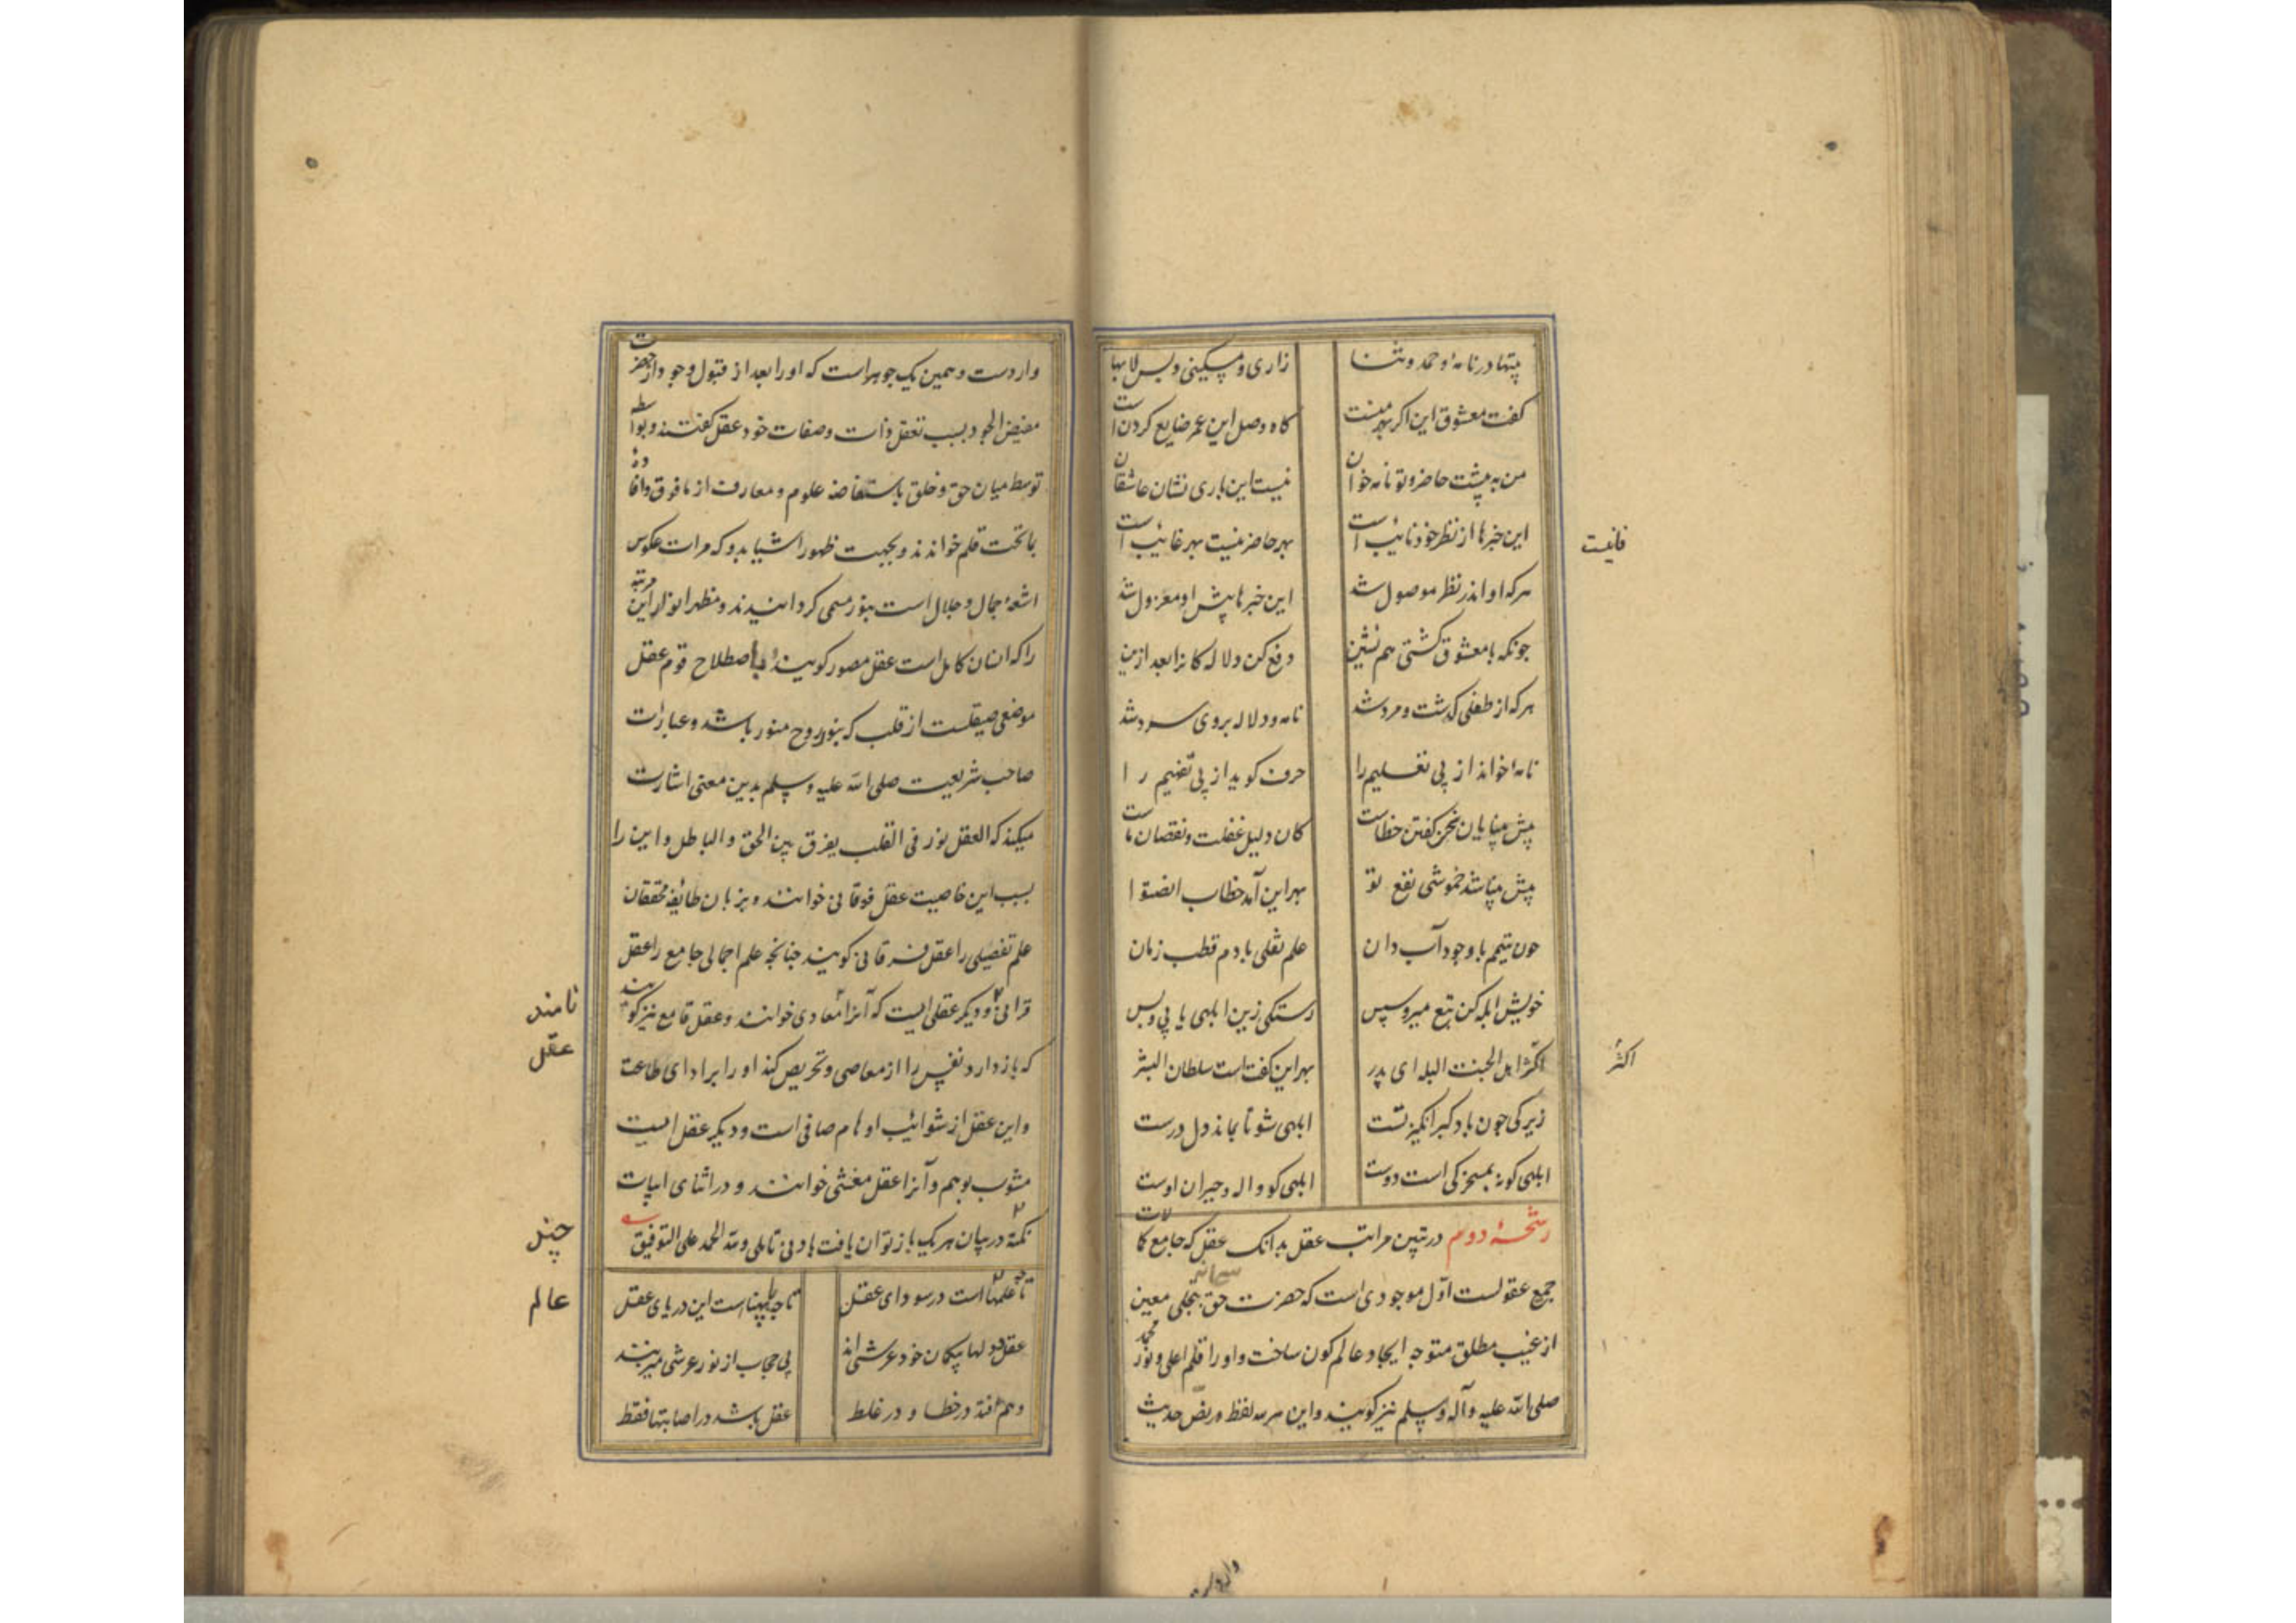 بیتها در نامه و حمد و ثنا زاری و مسکینی و بس لابها
گفت معشوق این اگر بهر منست گاه وصل این عمر ضایع کردن است
من به پیشت حاضر و تو نامه خوان نیست این باری نشان عاشقان
این خبرها از نظر خود نائب است بهر حاضر نیست بهر غائب است
فانیست
هرکه او اندر نظر موصول شد این خبرها پیش او معزول شد
چونکه با معشوق گشتی هم نشین دفع کن دلالکانرا بعد ازین
هرکه از طفلی گذشت و مرد شد نامه و دلاله بر وی سرد شد
نامه خواند از پی تعلیم را حرف گوید از پی تفهیم را
پیش بینایان سخن گفتن خطاست کان دلیل غفلت و نقصان ماست
پیش بینا شد خموشی نفع تو بهر این آمد خطاب انصتوا
چون تیمم با وجود آب دان علم نقلی با دم قطب زمان
خویش ابله کن تبع میرو سپس رستگی زین ابلهی یابی و بس
اکثر اهل الجنت البله ای پدر بهر این گفت است سلطان البشر
اکثر
زیرکی چون باد کبر انگیز تست ابلهی شو تا بماند دل درست
ابلهی کو نه بمسخرگی است دوست ابلهی کو واله و حیران اوست
رشحهٔ دوم در تبین مراتب عقل بدانک عقل که جامع کالات
جمیع عقولست اوّل موجودی است که حضرت حق سبحانه بتجلی معین
از غیب مطلق متوجه ایجاد عالم کون ساخت و او را قلم اعلی و نور محمد
صلی الله علیه وآله وسلم نیز گویند و این هر سه لفظ در نصّ حدیث
واردست
واردست و همین یک جوهر است که او را بعد از قبول وجود از حضرت
مفیض الجود بسبب تعقل ذات و صفات خود عقل گفتند و بواسطه
توسط میان حق و خلق باستفاضه علوم و معارف از مافوق و افادهٔ
بماتحت قلم خواندند و بجهت ظهور اشیا بدو که مرات عکوس
اشعهٔ جمال و جلال است بنور مسمی گردانیدند و مظهر انوار این مرتبه
را که انسان کامل است عقل مصور گویند و باصطلاح قوم عقل
موضعی صیقلست از قلب که بنور روح منور باشد و عبارات
صاحب شریعت صلی الله علیه وسلم بدین معنی اشارت
میکند که العقل نور فی القلب یفرق بین الحق و الباطل و این را
بسبب این خاصیت عقل فرقانی خوانند و بزبان طائفه محققان
علم تفصیلی را عقل فرقانی گویند چنانچه علم اجمالی جامع را عقل
قرانی و دیگر عقلی ایست که آنرا معادی خوانند و عقل قامع نیز گویند
نامند
عقل
که باز دارد نفس را از معاصی و تحریص کند او را بر ادای طاعت
و این عقل از شوائب اوهام صافی است و دیگر عقل ایست
مشوب بوهم و آنرا عقل معشی خوانند و در اثنای ابیات
نکته در بیان هر یک باز توان یافت بادنی تاملی ولله الحمد علی التوفیق
چند
تا چه عالمهاست در سودای عقل تا چه با پهناست این دریای عقل
عالم
عقل دلها بیگمان خود عرشی اند بی حجاب از نور عرشی میزیند
وهم افتد در خطا و در غلط عقل باشد در اصابتها فقط